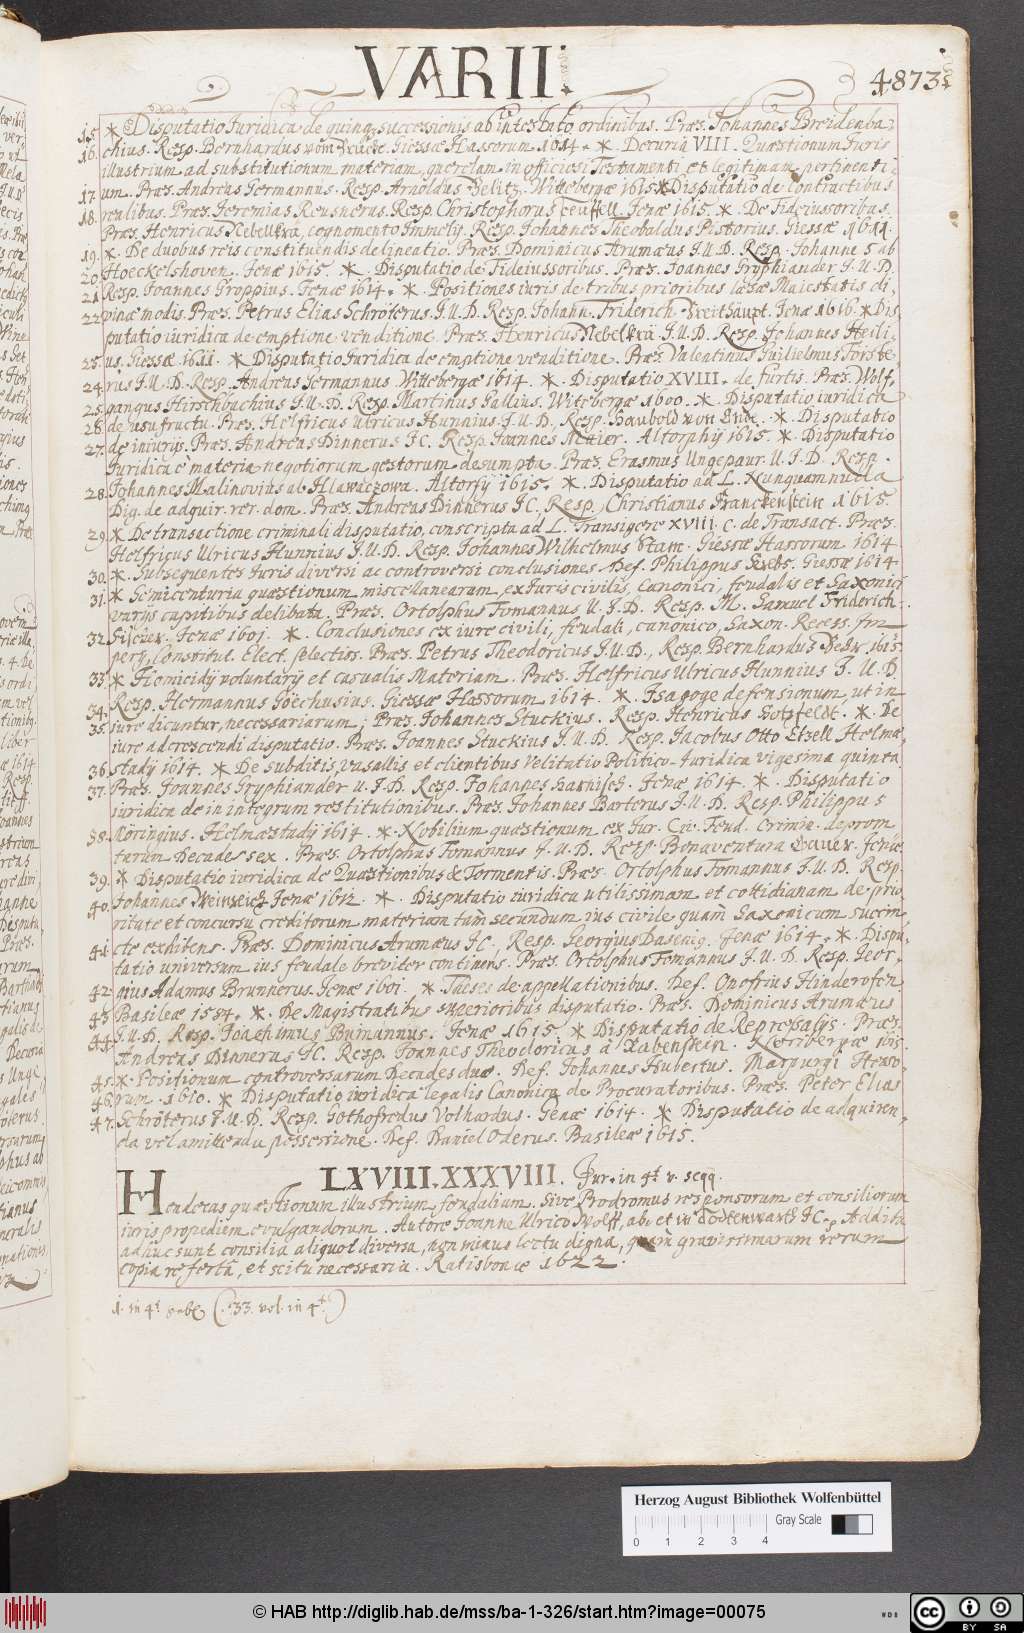 VARII.
4873.
15. * Disputatio Juridica de quinq; successionis ab intestato ordinibus. Præs. Johannes Breidenba-
16. chius. Resp. Bernhardus vom Giessæ Hassorum 1614. * Decuria VIII. Quæstionum Juris
illustrium ad substitutionum materiam, querelam inofficiosi Testamenti et legitimam pertinenti-
17. um. Præs. Andreas Germannus. Resp. Arnoldus Belitz. Wittebergæ 1615. * Disputatio de contractibus
18. realibus. Præs. Jeremias Reusnerus. Resp. Christophorus Teuffell. Jenæ 1615. * De Fideiussoribus.
Præs. Henricus Nebelkra, cognomento Immely. Resp. Johannes Theobaldus Pistorius. Giessæ 1611.
19. * De duobus reis constituendis delineatio. Præs. Dominicus Arumæus J.U.D. Resp. Johannes ab
20. Hoeckelshoven. Jenæ 1615. * Disputatio de Fideiussoribus. Præs. Joannes Gryphiander J.U.D.
21. Resp. Joannes Groppius. Jenæ 1614. * Positiones iuris de tribus prioribus læsæ Maiestatis di-
22. vinæ modis. Præs. Petrus Elias Schröterus. J.U.D. Resp. Johann. Friderich Breithaupt. Jenæ 1616. * Dis-
putatio iuridica de emptione venditione. Præs. Henricus Nebelkra J.U.D. Resp. Johannes Heili-
23. us. Giessæ 1611. * Disputatio Juridica de emptione venditione. Præs. Valentinus Guilielmus Förste-
24. rus J.U.D. Resp. Andreas Germannus. Wittebergæ 1614. * Disputatio XVIII. de furtis. Præs. Wolf-
25. gangus Hirschbachius J.U.D. Resp. Martinus Gallius. Witebergæ 1600. * Disputatio iuridica
26. de usufructu. Præs. Helfricus Ulricus Hunnius. J.U.D., Resp. Haubold von Ende. * Disputatio
27. de iniurijs. Præs. Andreas Dinnerus JC. Resp. Joannes Meier. Altorphij 1615. * Disputatio
Juridica e materia negotiorum gestorum desumpta. Præs. Erasmus Ungepaur. U.J.D. Resp.
28. Johannes Malinovius ab Hlawaczowa. Altorfij 1615. * Disputatio ad L. Nunquam nuda
Dig. de adquir. rer. dom. Præs. Andreas Dinnerus JC. Resp. Christianus Franckenstein 1615.
29. * De transactione criminali disputatio, conscripta ad L. Transigere XVIII. C. de Transact. Præs.
Helfricus Ulricus Hunnius J.U.D. Resp. Johannes Wilhelmus Stam. Giessæ Hassorum 1614
30. * Subsequentes Juris diversi ac controversi conclusiones. Def. Philippus Krebs. Giessæ 1614
31. * Semicenturia quæstionum miscellanearum, ex Juris civilis, Canonici, feudalis et Saxonici
varijs capitibus delibata. Præs. Ortolphus Fomannus U.J.D. Resp. M. Samuel Friderich
32. Fischer. Jenæ 1601. * Conclusiones ex iure civili, feudali, canonico, Saxon. Recess. Im-
perij, Constitut. Elect. selectiss. Præs. Petrus Theodoricus J.U.D., Resp. Bernhardus 1615.
33. * Homicidij voluntarij et casualis Materiam. Præs. Helfricus Ulricus Hunnius J.U.D.
34. Resp. Hermannus Goëchusius. Giessæ Hassorum 1614 * Isagoge defensionum, ut in
35. iure dicuntur, necessariarum; Præs. Johannes Stuckius. Resp. Henricus Hotzfeldt. * De
iure adcrescendi disputatio. Præs. Joannes Stuckius J.U.D. Resp. Jacobus Otto Etzell Helmæ-
36. stadij 1614. * De subditis, vasallis et clientibus Velitatio Politico-Juridica vigesima quinta.
37. Præs. Joannes Gryphiander U.J.D. Resp. Johannes Harnisch. Jenæ 1614. * Disputatio
iuridica de in integrum restitutionibus. Præs. Johannes Barterus J.U.D. Resp. Philippus
38. Möringius. Helmæstadij 1614. * Nobilium quæstionum ex Jur. Civ. Feud. Crimin. deprom-
tarum Decades sex. Præs. Ortolphus Fomannus J.U.D. Resp. Bonaventura Jenæ.
39. * Disputatio iuridica de Quæstionibus & Tormentis. Præs. Ortolphus Fomannus J.U.D. Resp.
40. Johannes Weinreich Jenæ 1612. * Disputatio iuridica utilissimam et cottidianam de prio-
ritate et concursu creditorum materiam tàm secundum ius civile quàm Saxonicum succin-
41. cte exhibens. Præs. Dominicus Arumæus JC. Resp. Georgius Dasenig. Jenæ 1614. * Dispu-
tatio universum ius feudale breviter continens. Præs. Ortolphus Fomannus J.U.D. Resp. Geor-
42. gius Adamus Brunnerus. Jenæ 1601. * Theses de appellationibus. Def. Onofrius Hinderofen
43. Basileæ 1584. * De Magistratibus superioribus disputatio. Præs. Dominicus Arumæus
44. J.U.D. Resp. Joachimus Bumannus. Jenæ 1615. * Disputatio de Repressalijs. Præs.
Andreas Dinnerus JC. Resp. Joannes Theodoricus à Rabenstein. Noribergæ 1615
45. * Positionum controversarum Decades duæ. Def. Johannes Hubertus. Marpurgi Hesso-
46. rum. 1610. * Disputatio iuridica legalis Canonica de Procuratoribus. Præs. Peter Elias
47. Schröterus J.U.D. Resp. Gothofredus Volhardus. Jenæ 1614. * Disputatio de adquiren-
da vel amittenda possessione. Def. Daniel Oderus. Basileæ 1615.
LXVIII. XXXVIII. Jur. in 4t. v. seqq.
Hendecas quæstionum illustrium feudalium. Sive Prodromus responsorum et consiliorum
iuris propediem evulgandorum. Autore Joanne Ulrico Wolff, ab et in Todtenwarth JC. Addita
adhuc sunt consilia aliquot diversa, non minus lectu digna, quàm gravissimarum rerum
copia referta, et scitu necessaria. Ratisbonæ 1622.
1. in 4t. (33. vol. in 4t.)
Herzog August Bibliothek Wolfenbüttel
Gray Scale
0 1 2 3 4
© HAB http://diglib.hab.de/mss/ba-1-326/start.htm?image=00075
WDB
CC BY SA